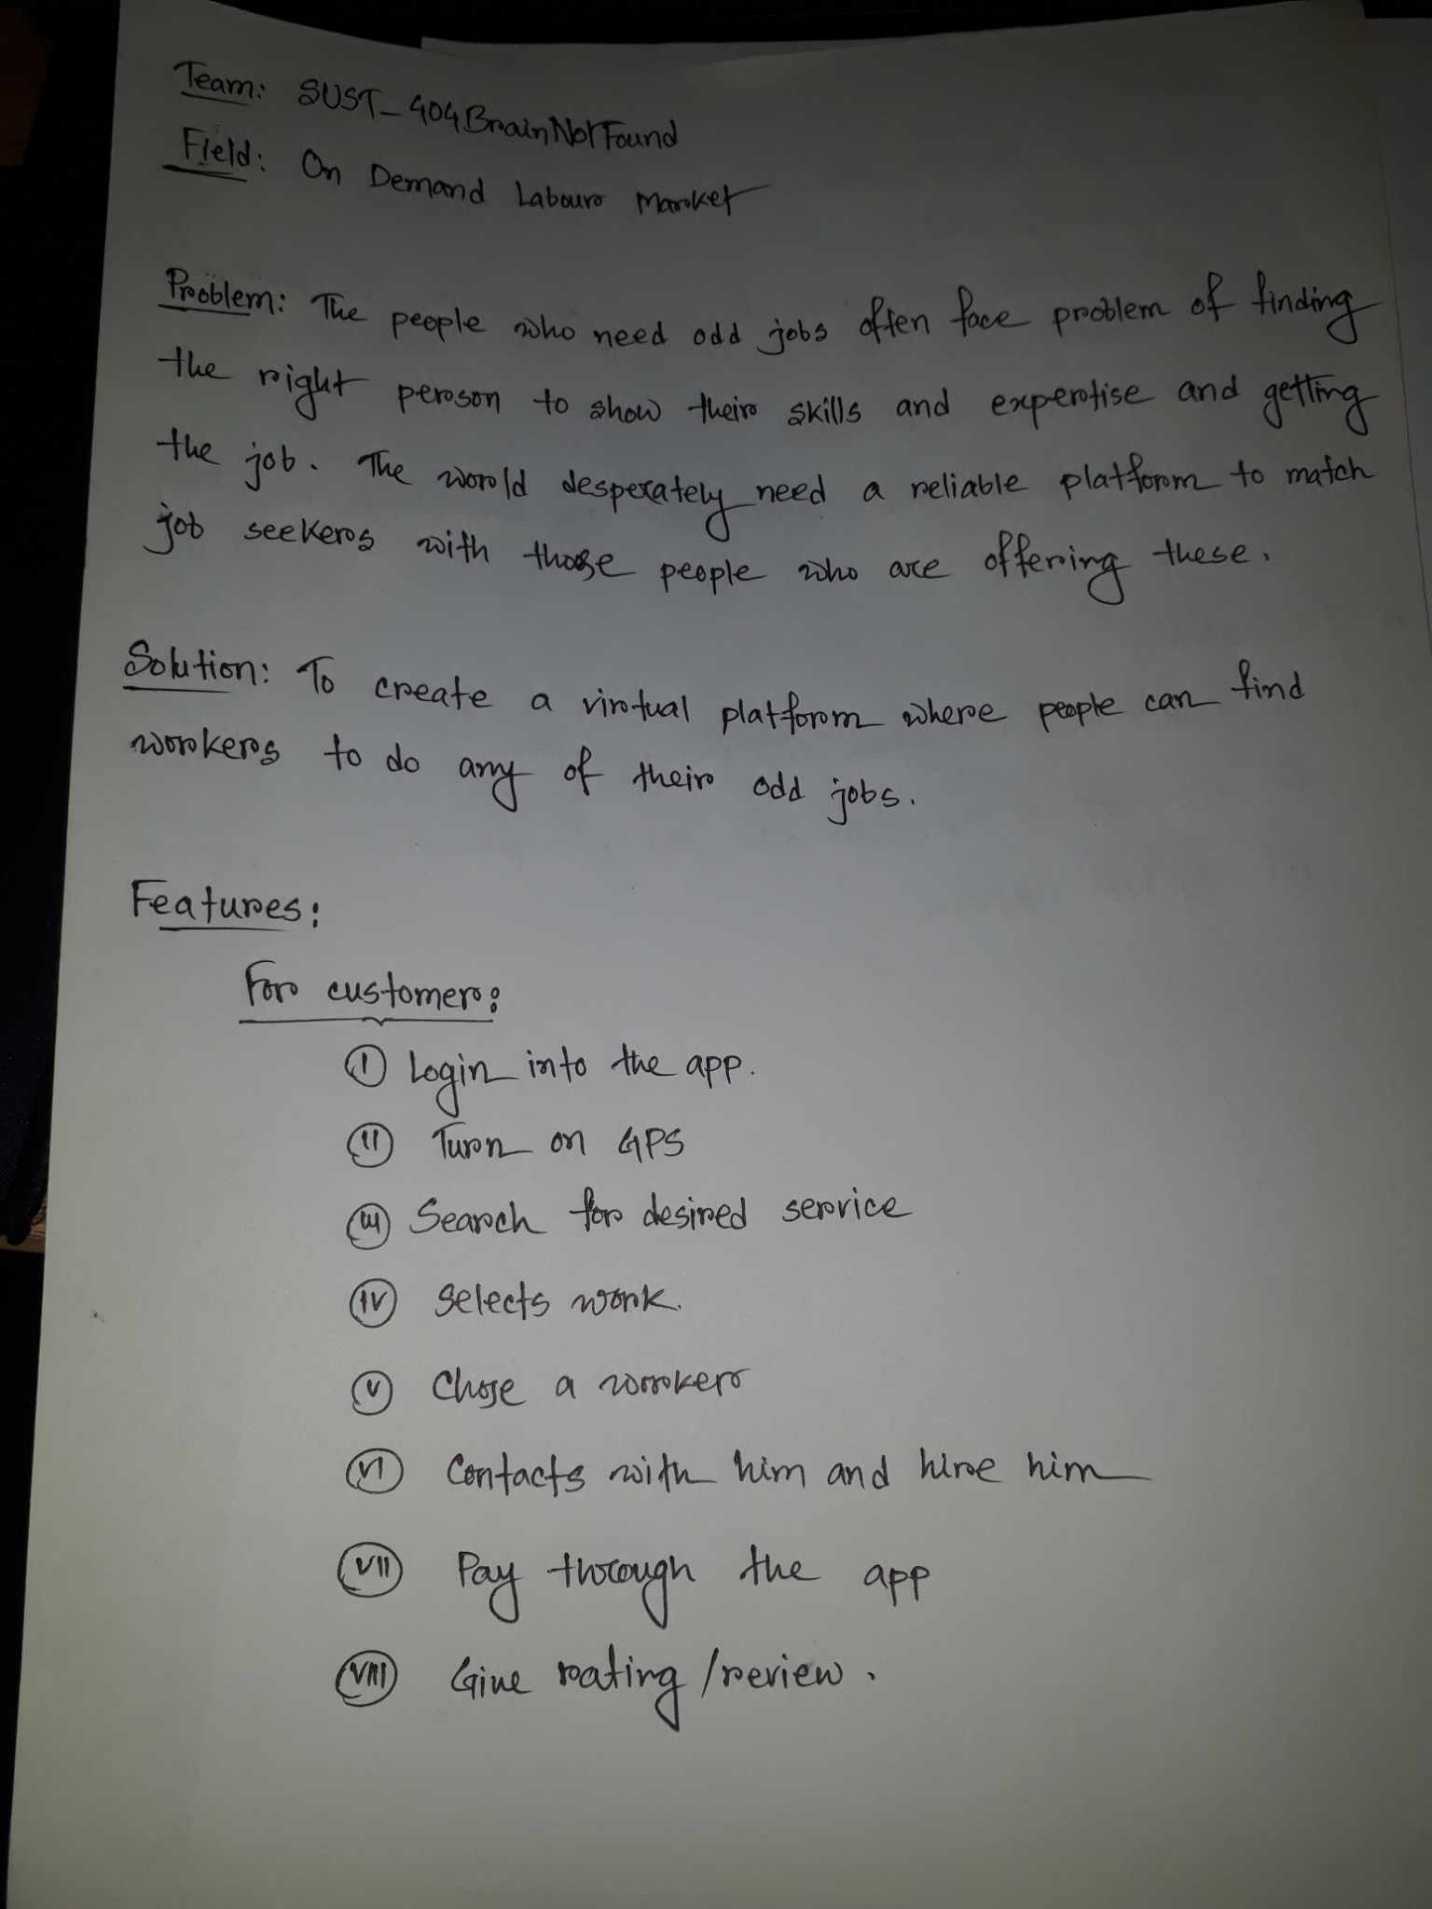 Team: SUST_404BrainNotFound
Field: On Demand Labour Market
Problem: The people who need odd jobs often face problem of finding
the right person to show their skills and expertise and getting
the job. The world desperately need a reliable platform to match
job seekers with those people who are offering these.
Solution: To create a virtual platform where people can find
workers to do any of their odd jobs.
Features:
For customer:
(I) Login into the app.
(II) Turn on GPS
(III) Search for desired service
(IV) Selects work.
(V) Chose a worker
(VI) Contacts with him and hire him
(VII) Pay through the app
(VIII) Give rating/review.